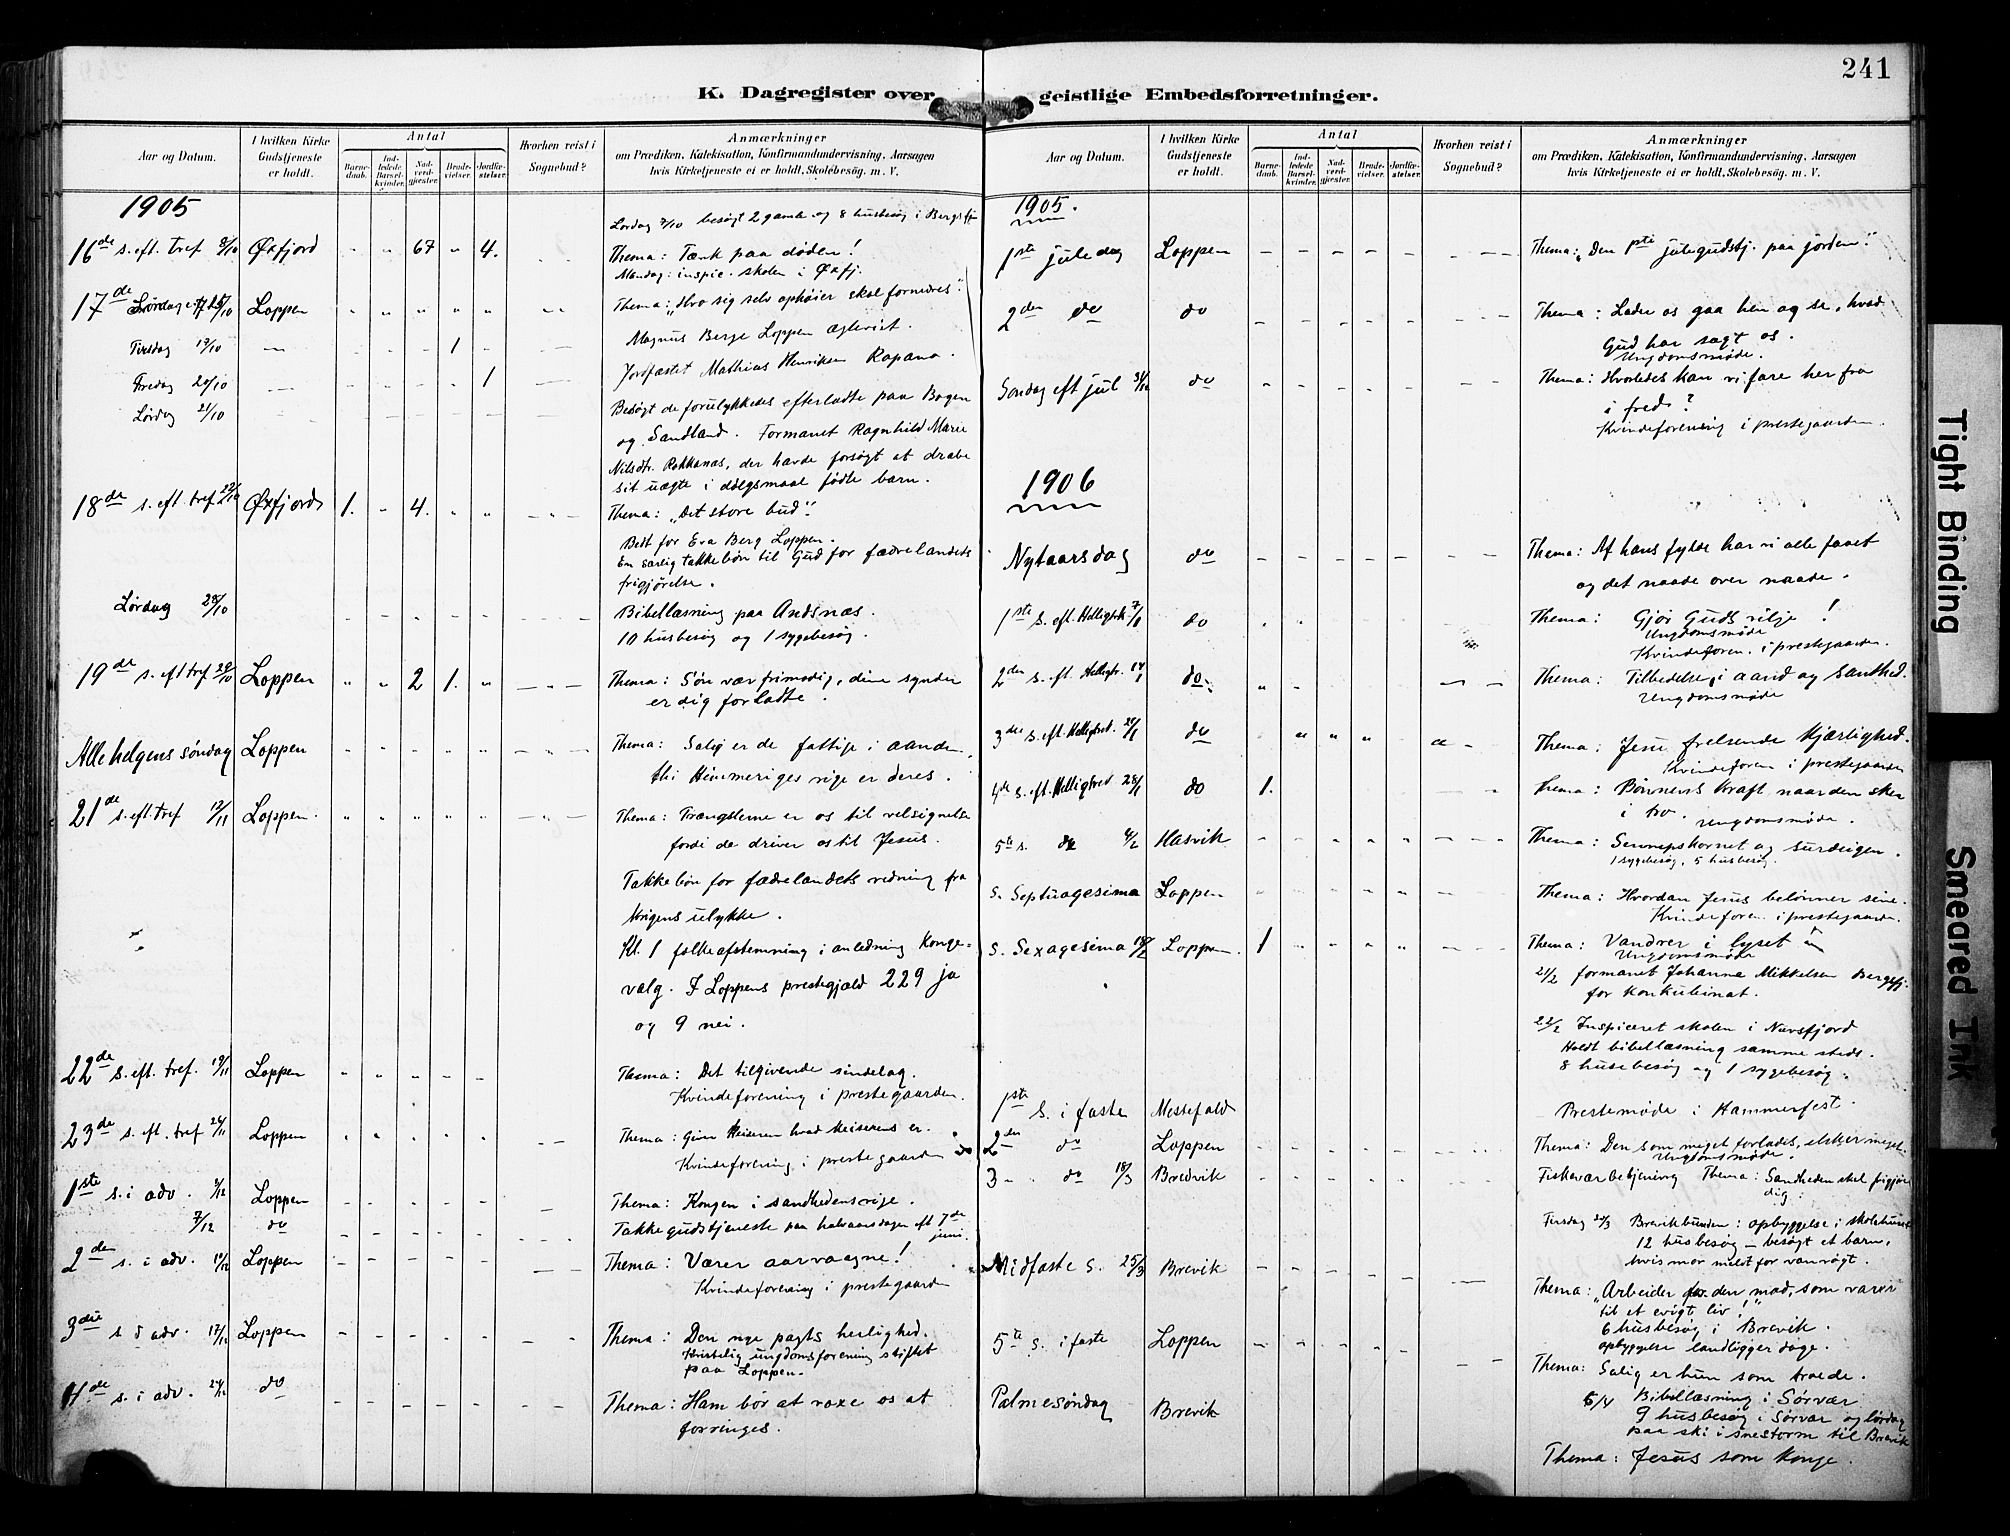 241
K. Dagregister over geistlige Embedsforretninger.
Aar og Datum.
I hvilken Kirke Gudstjeneste er holdt.
Antal
Barnedaab.
Indledede Barselkvinder.
Nadverdgjester.
Brudevielser.
Jordfæstelser.
Hvorhen reist i Sognebud?
Anmærkninger
om Prædiken, Katekisation, Konfirmandundervisning, Aarsagen
hvis Kirketjeneste ei er holdt, Skolebesøg. m. V.
1905
Lørdag 7/10 besøgt 2 gamle og 8 husbesøg i Bergsfj
16de s. eft. tref 8/10 Øxfjord 67 4. Thema: Tænk paa døden!
Mandag: inspic. skolen i Øxfj.
17de Loppen Thema: "Hvo sig selv ophøier skal fornedres".
Tirsdag 17/10 1 Magnus Berge Loppen ægteviet.
Fredag 20/10 1 Jordfæstet Mathias Henriksen
Lørdag 21/10 Besøgt de forulykkedes efterladte paa Bogen
og Sandland. Formanet Ragnhild Marie
Nilsdtr. , der havde forsøgt at dræbe
sit uægte i dølgsmaal fødte barn.
18de s. eft. tref 22/10 Øxfjord 1. 4. Thema: "Det store bud".
Bedt for Eva Berg Loppen.
En særlig takkebøn til Gud for fædrelandets
frigjørelse.
Lørdag 28/10 Bibellæsning paa Andsnæs.
10 husbesøg og 1 sygebesøg.
19de s. eft tref 29/10 Loppen 2 1. Thema: Søn vær frimodig, dine synder
er dig forladte.
Alle helgens søndag Loppen Thema: Salig er de fattige i aanden
thi Himmeriges rige er deres.
21de s. eft. tref 12/11 Loppen. Thema: Trængslerne er os til velsignelse
fordi de driver os til Jesus.
Takkebøn for fædrelandets redning fra
krigens ulykke.
Kl. 1 folkeafstemning i anledning Konge-
valg. I Loppens prestegjæld 229 ja
og 9 nei.
22de s. eft. tref. 19/11 Loppen Thema: Det tilgivende sindelag.
Kvindeforening i prestegaarden.
23de s. eft. tref 26/11 Loppen Thema: Giver Keiseren hvad Keiserens er.
Kvindeforening i prestegaarden
1ste s. i adv. 3/12 Loppen Thema: Kongen i sandhedens rige.
7/12 do Takkegudstjeneste paa halvaarsdagen eft 7de juni.
2den s. i adv. 10/12 Loppen Thema: Værer aarvaagne!
Kvindeforening i prestegaarden
3die s i adv. 17/12 Loppen Thema: Den nye pagts herlighed.
Kristelig ungdomsforening stiftet
paa Loppen.
4de s. i adv. 24/12 do Thema: Ham bør at voxe os at
forringes.
K. Dagregister over geistlige Embedsforretninger.
Aar og Datum.
I hvilken Kirke Gudstjeneste er holdt.
Antal
Barnedaab.
Indledede Barselkvinder.
Nadverdgjester.
Brudevielser.
Jordfæstelser.
Hvorhen reist i Sognebud?
Anmærkninger
om Prædiken, Katekisation, Konfirmandundervisning, Aarsagen
hvis Kirketjeneste ei er holdt, Skolebesøg. m. V.
1905.
1ste juledag Loppen Thema: "Den 1ste julegudstj. paa jorden".
2den do do Thema: Lader os gaa hen og se, hvad
Gud har sagt os.
Ungdomsmøde.
Søndag eft jul 31/12 do Thema: Hvorledes kan vi fare her fra
i fred?
Kvindeforening i prestegaarden.
1906
Nytaarsdag do Thema: Af hans fylde har vi alle faaet
og det naade over naade.
1ste s. eft. Helligtrek 7/1 do Thema: Gjør Guds vilje!
Ungdomsmøde
Kvindeforen. i prestegaarden.
2den s. eft. Helligtr. 14/1 do. Thema: Tilbedelse i aand og Sandhed.
Ungdomsmøde
3die s. eft. Helligtred. 21/1 do Thema: Jesu frelsende Kjærlighed.
Kvindeforen i prestegaarden
4de s. eft. Helligtred 28/1 do 1. Thema: Bønnens Kraft naar den sker
i tro. Ungdomsmøde.
5te s. do 4/2 Hasvik Thema: Sennepskornet og surdeigen.
1 sygebesøg, 5 husbesøg.
S. Septuagesima Loppen Thema: Hvordan Jesus belønner sine.
Kvindeforen. i prestegaarden.
S. Sexagesima 18/2 Loppen. 1 Thema: Vandrer i lyset
Ungdomsmøde
21/2 formanet Johanna Mikkelsen Bergsfj.
for Konkubinat.
22/2 Inspiceret skolen i Nuvsfjord
Holdt bibellæsning samme steds.
8 husebesøg og 1 sygebesøg.
1ste s. i faste Messefald Prestemøde i Hammerfest.
2den do Loppen Thema: Den som meget forlades, elsker meget.
Ungdomsmøde.
3 - do 18/3 Bredvik Fiskeværbetjening Thema: Sandheden skal frigjøre
dig.
Tirsdag 20/3 Brevikbunden: opbyggelse i skolehuset
12 husbesøg - besøgt et barn,
hvis mor meldt for vanrøgt.
Midfaste S. 25/3 Brevik Thema: "Arbeider for den mad, som varer
til et evigt liv!"
6 husbesøg i Brevik.
opbyggelse landliggerdage.
5te s. i faste Loppen Thema: Salig er hun som troede.
5/4 Bibellæsning i Sørvær
9 husbesøg i Sørvær og lørdag
paa ski i snestorm til Brevik
Palmesøndag Brevik Thema: Jesus som Konge.
Tight Binding
Smeared Ink